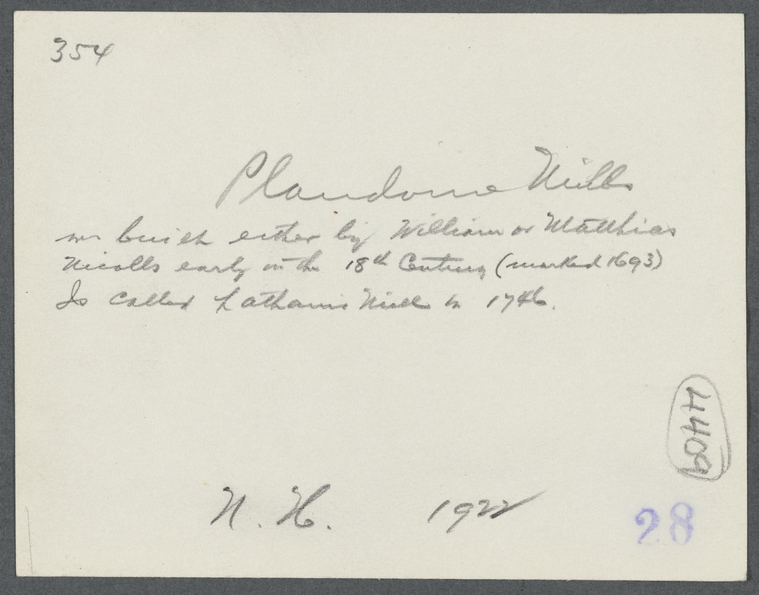 354
Plandome Mills
was built either by William or Matthias
Nicolls early in the 18th Century (marked 1693)
Is called Latham's Mill in 1746.
4409
N. H. 1922
28